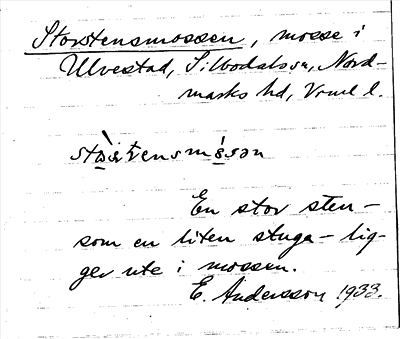 Storstensmossen, mosse i
Ulvestad, Silbodals sn, Nord-
marks hd, Vrml l.
En stor sten -
som en liten stuga - lig-
ger ute i mossen.
E. Andersson 1933.